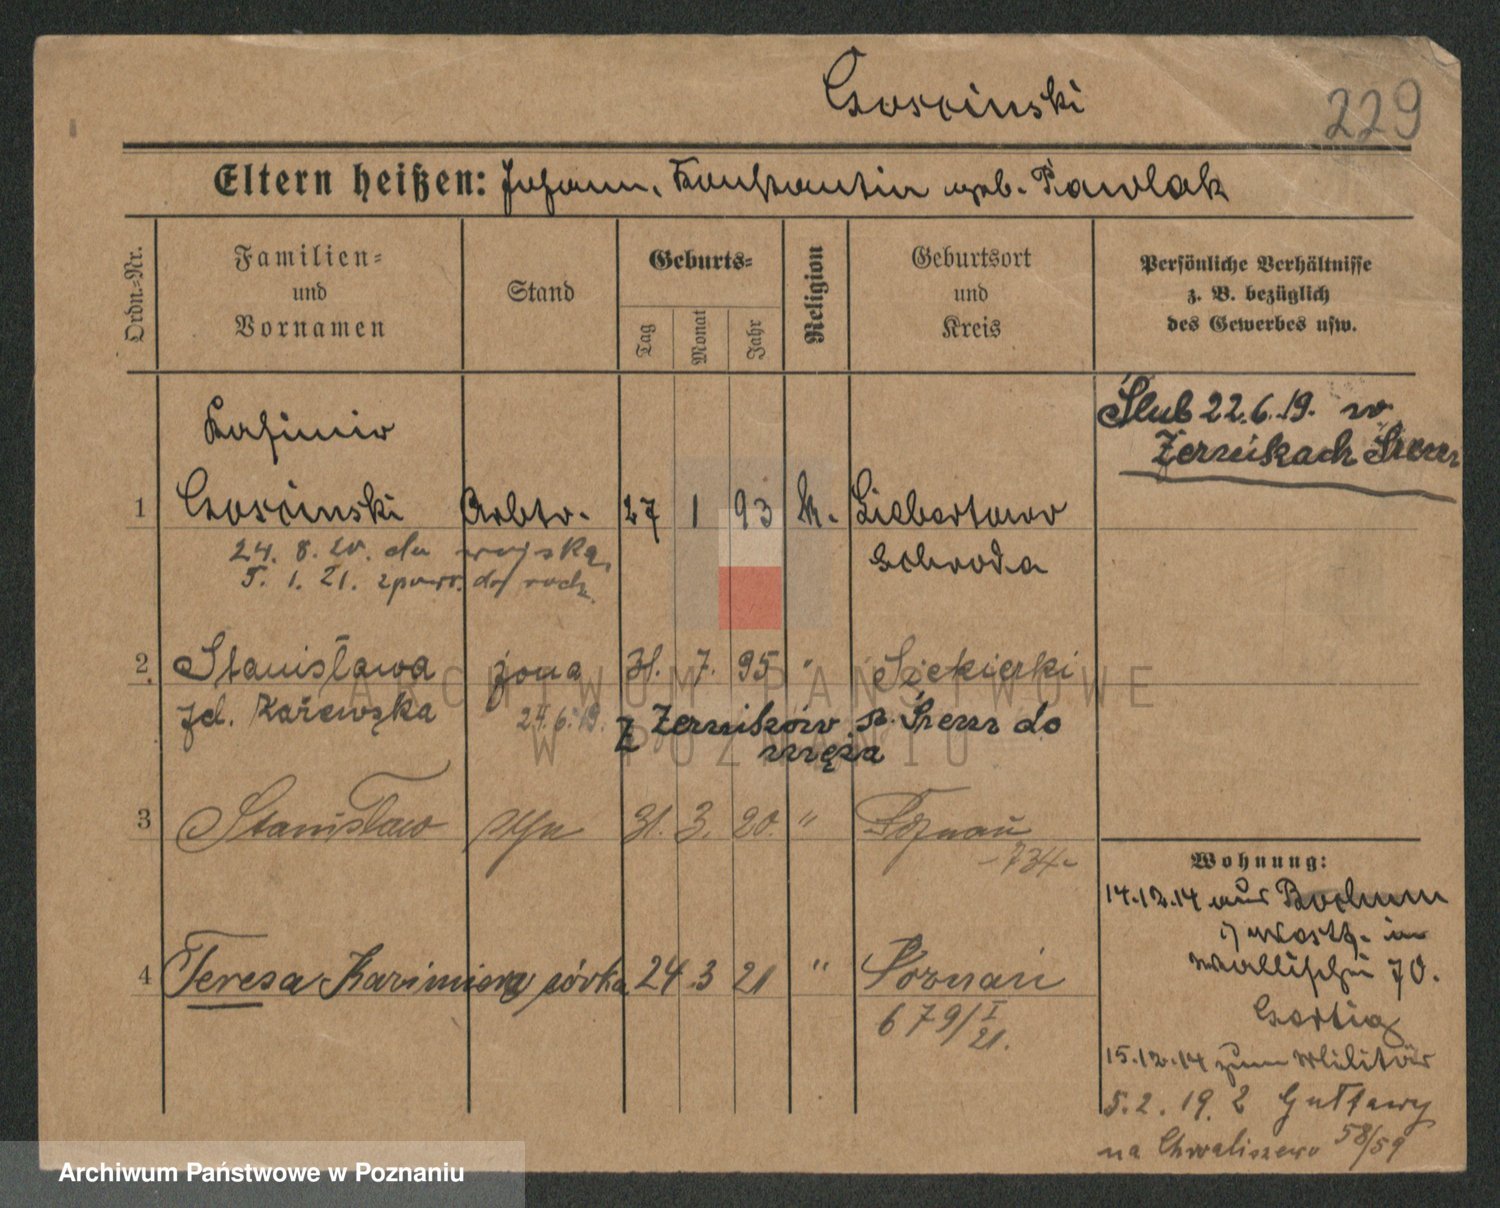 Goscinski
229
Eltern heißen: Johann, Konstantin geb. Pawlak
Ordn.-Nr.
Familien-
und
Vornamen
Stand
Geburts-
Tag
Monat
Jahr
Religion
Geburtsort
und
Kreis
Persönliche Verhältnisse
z. B. bezüglich
des Gewerbes usw.
Ślub 22.6.19. w
Żernikach Śrem
Kasimir
1 Goscinski Arbtr. 27 1 93 k.
Schroda
24. 8. 20. do wojska,
5. 1. 21. zpowr. do rodz.
2. Stanisława żona 31. 7. 95 " Siekierki
24.6.19. Z Żerników p. Śrem do
męża
3 Stanisław syn 31. 3. 20. " Poznań
-734-
4 Teresa Kazimiera córka 24 3 21 " Poznań
679/I
21.
Wohnung:
14.12.14 aus Bochum
i/Westf. in
Wallischei 70.
15.12.14 zum Militär
5.2.19. Z
na Chwaliszewo 58/59
ARCHIWUM PAŃSTWOWE
W POZNANIU
Archiwum Państwowe w Poznaniu